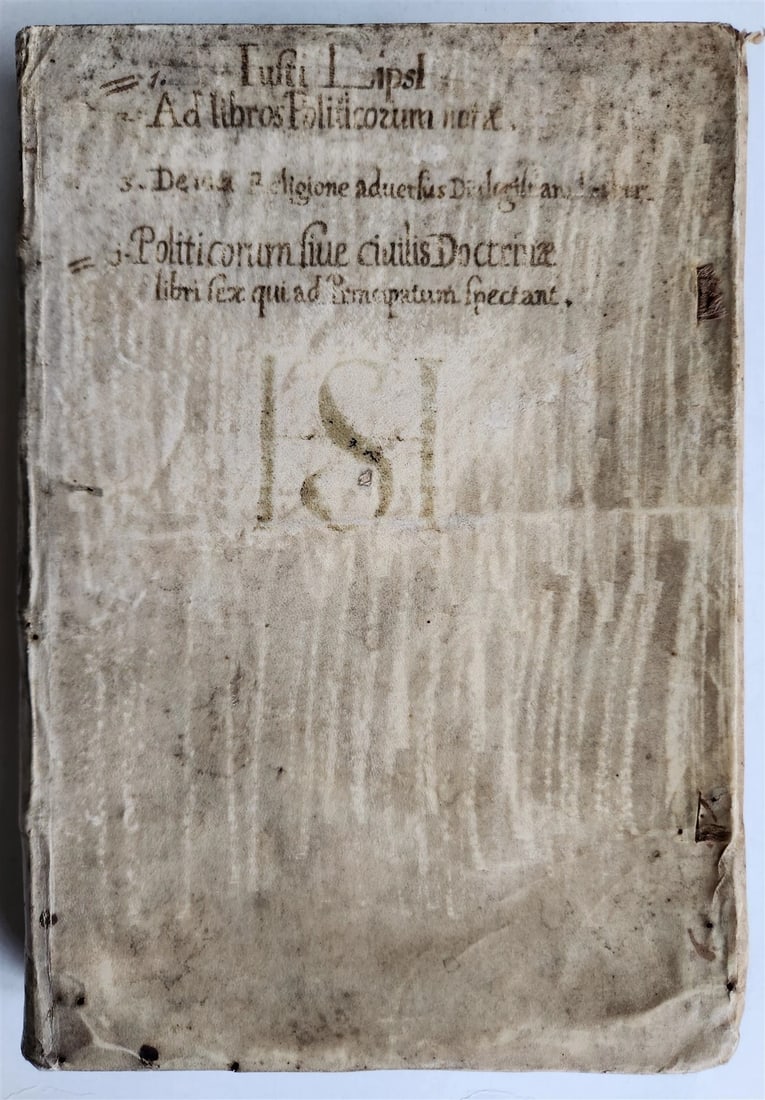 1. Iusti LipsI
Ad libros Politicorum notæ.
3. De una Religione aduersus
Politicorum siue ciuilis Doctrinæ
libri sex qui ad Principatum spectant.
ISI